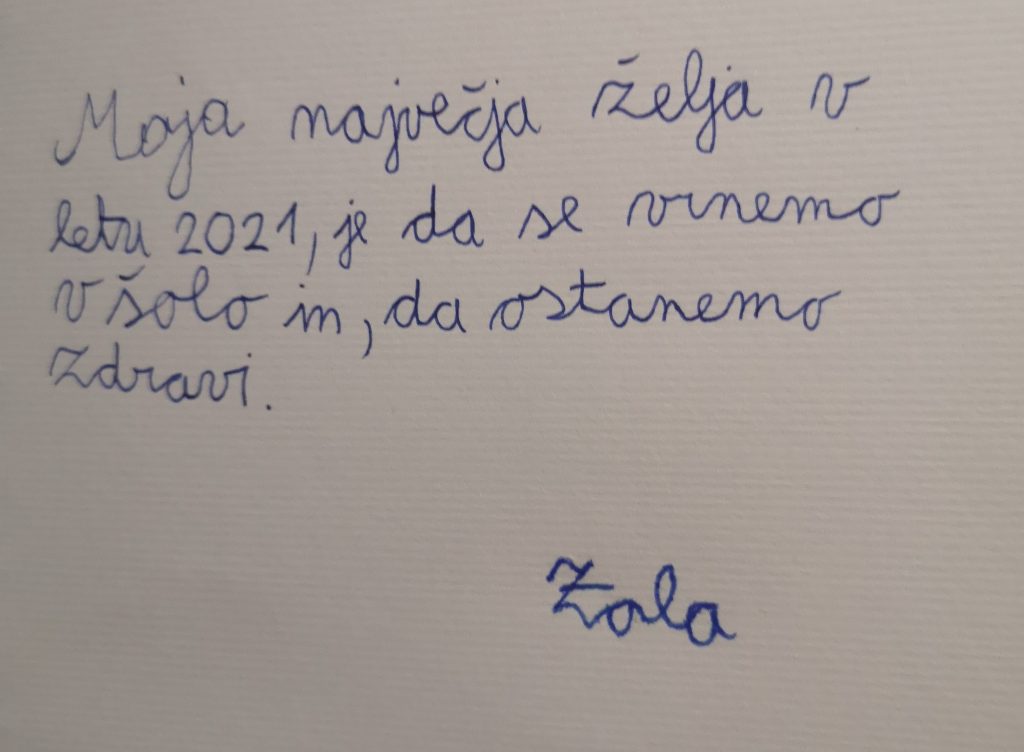 Moja največja želja v
letu 2021, je da se vrnemo
v šolo in, da ostanemo
zdravi.
Zala